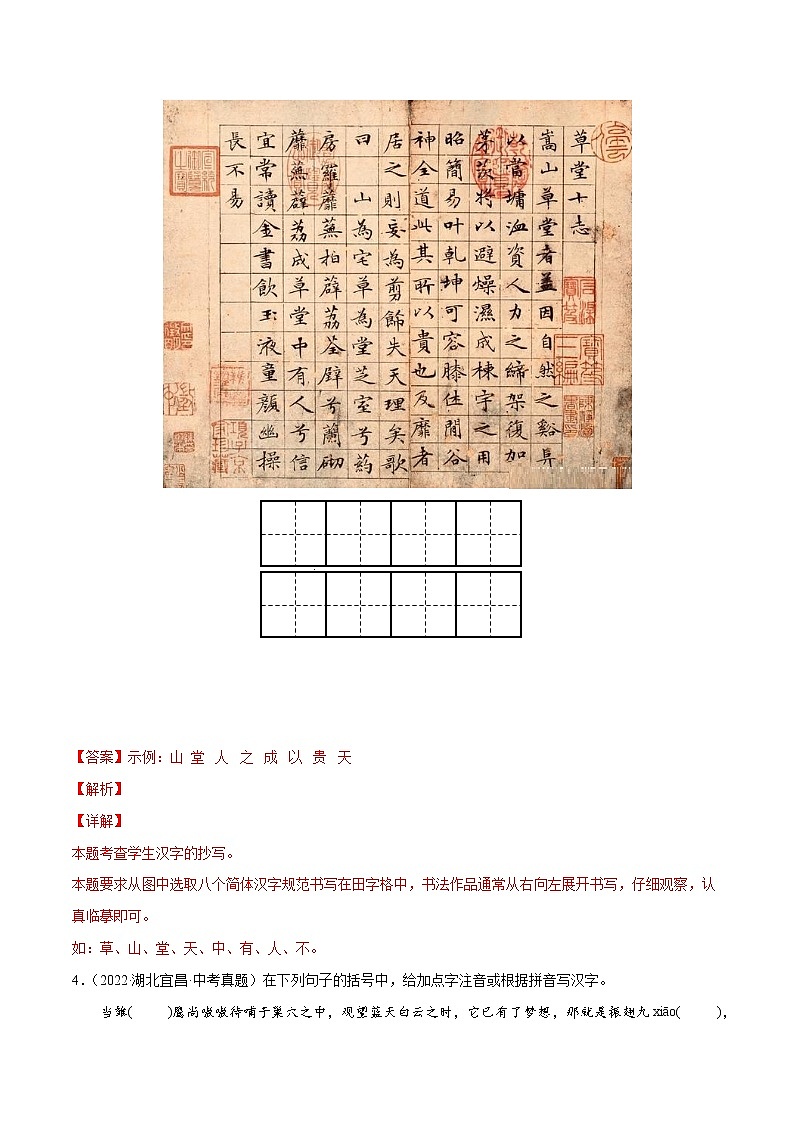 草堂十志
嵩山草堂者盖因自然之谿阜
以當墉洫資人力之締架復加
茅茨将以避燥濕成棟宇之用
昭簡易叶乾坤可容膝休閒谷
神全道此其所以貴也及靡者
居之則妄為剪餙失天理矣歌
曰 山為宅草為堂芝室兮葯
房羅蘼蕪拍薜荔荃壁兮蘭砌
蘼蕪薜荔成草堂中有人兮信
宜常讀金書飲玉液童顔幽操
長不易
【答案】示例：山 堂 人 之 成 以 贵 天
【解析】
【详解】
本题考查学生汉字的抄写。
本题要求从图中选取八个简体汉字规范书写在田字格中，书法作品通常从右向左展开书写，仔细观察，认
真临摹即可。
如：草、山、堂、天、中、有、人、不。
4.（2022·湖北宜昌·中考真题）在下列句子的括号中，给加点字注音或根据拼音写汉字。
当雏( )鹰尚嗷嗷待哺于巢穴之中，观望蓝天白云之时，它已有了梦想，那就是振翅九xiāo( )，